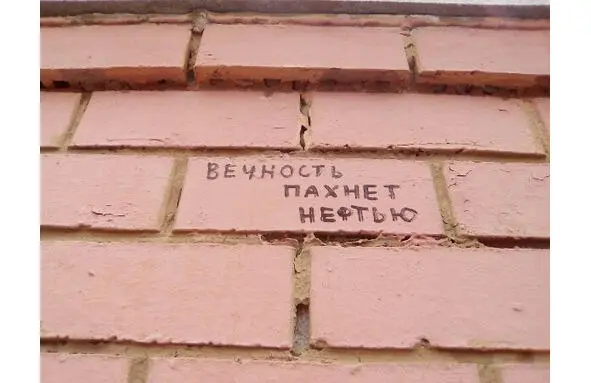 ВЕЧНОСТЬ
ПАХНЕТ
НЕФТЬЮ